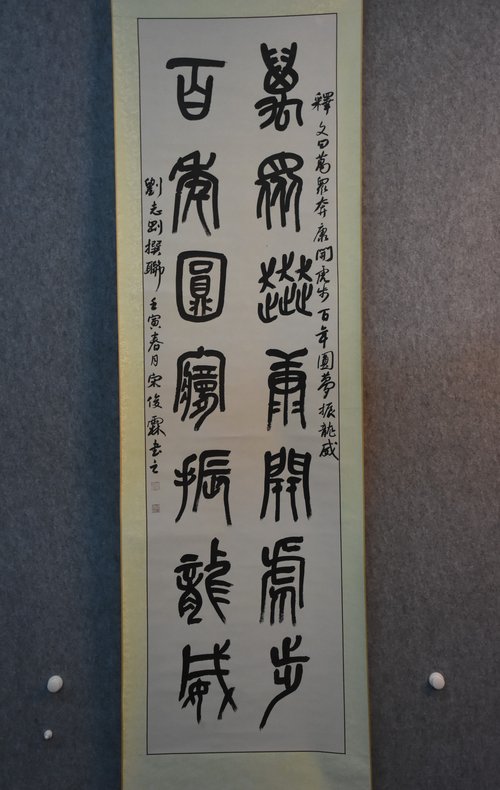 釋文曰萬眾奔康開虎步百年圓夢振龍威
萬眾奔康開虎步
百年圓夢振龍威
劉志剛撰聯 壬寅春月宋俊霖書之